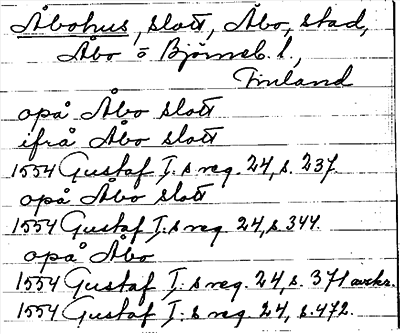 Åbohus, slott, Åbo, stad,
Åbo o Björneb. l.,
Finland
opå Åbo slott
ifrå Åbo slott
1554 Gustaf I:s reg. 24, s. 237.
opå Åbo slott
1554 Gustaf I:s reg. 24, s. 344.
opå Åbo
1554 Gustaf I:s reg. 24, s. 371 avskr.
1554 Gustaf I:s reg. 24, s. 472.